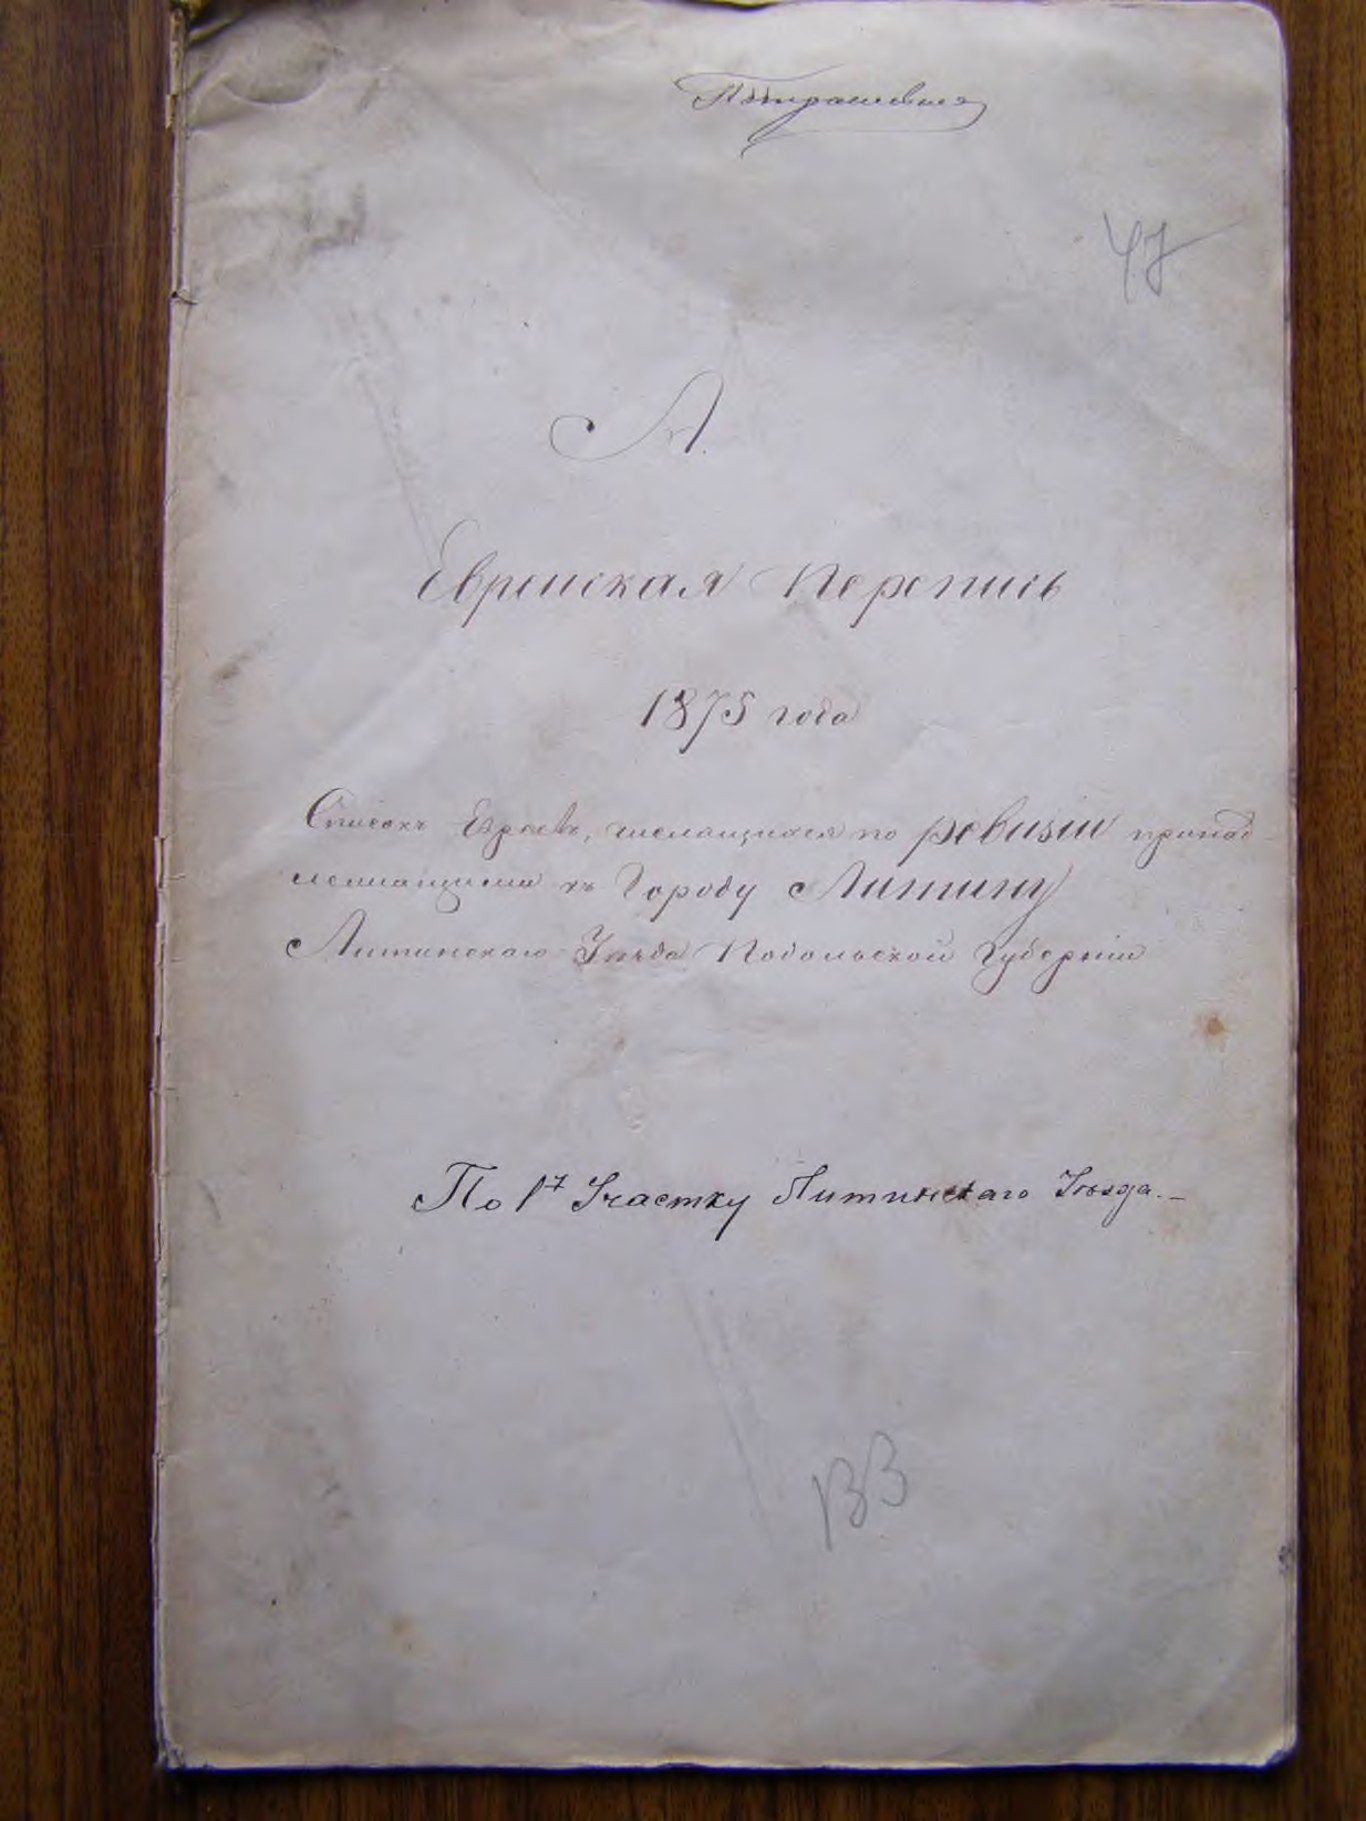 47
А.
Еврейская Перепись
1875 года
Списокъ Евреевъ, числящихся по ревизіи принад-
лежащими къ Городу Литину
Литинскаго Уѣзда Подольской Губерніи
По 1у Участку Литинскаго Уѣзда. —
133